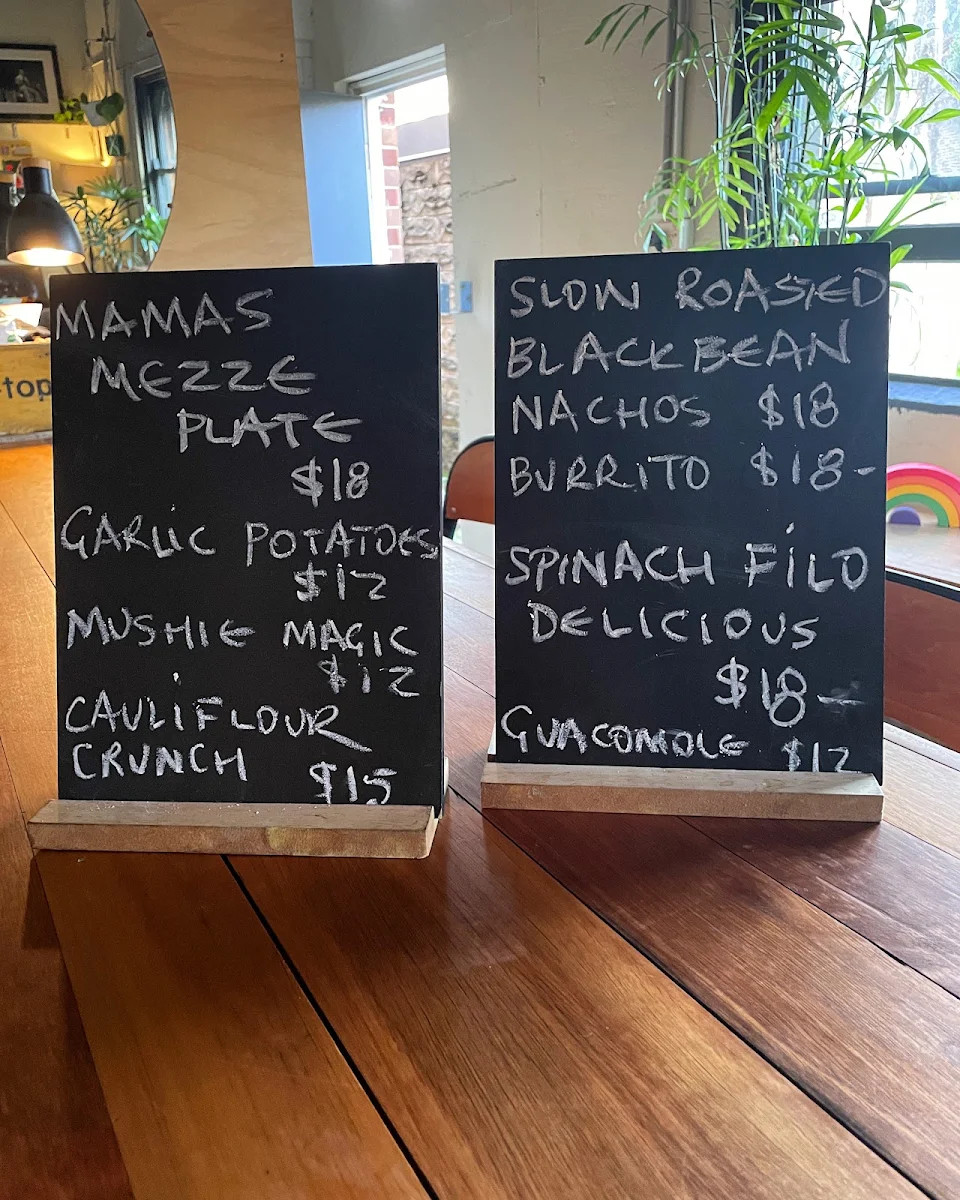 MAMAS
MEZZE
PLATE
$18
GARLIC POTATOES
$12
MUSHIE MAGIC
$12
CAULIFLOUR
CRUNCH $15
SLOW ROASTED
BLACKBEAN
NACHOS $18
BURRITO $18-
SPINACH FILO
DELICIOUS
$18-
GUACOMOLE $12
top